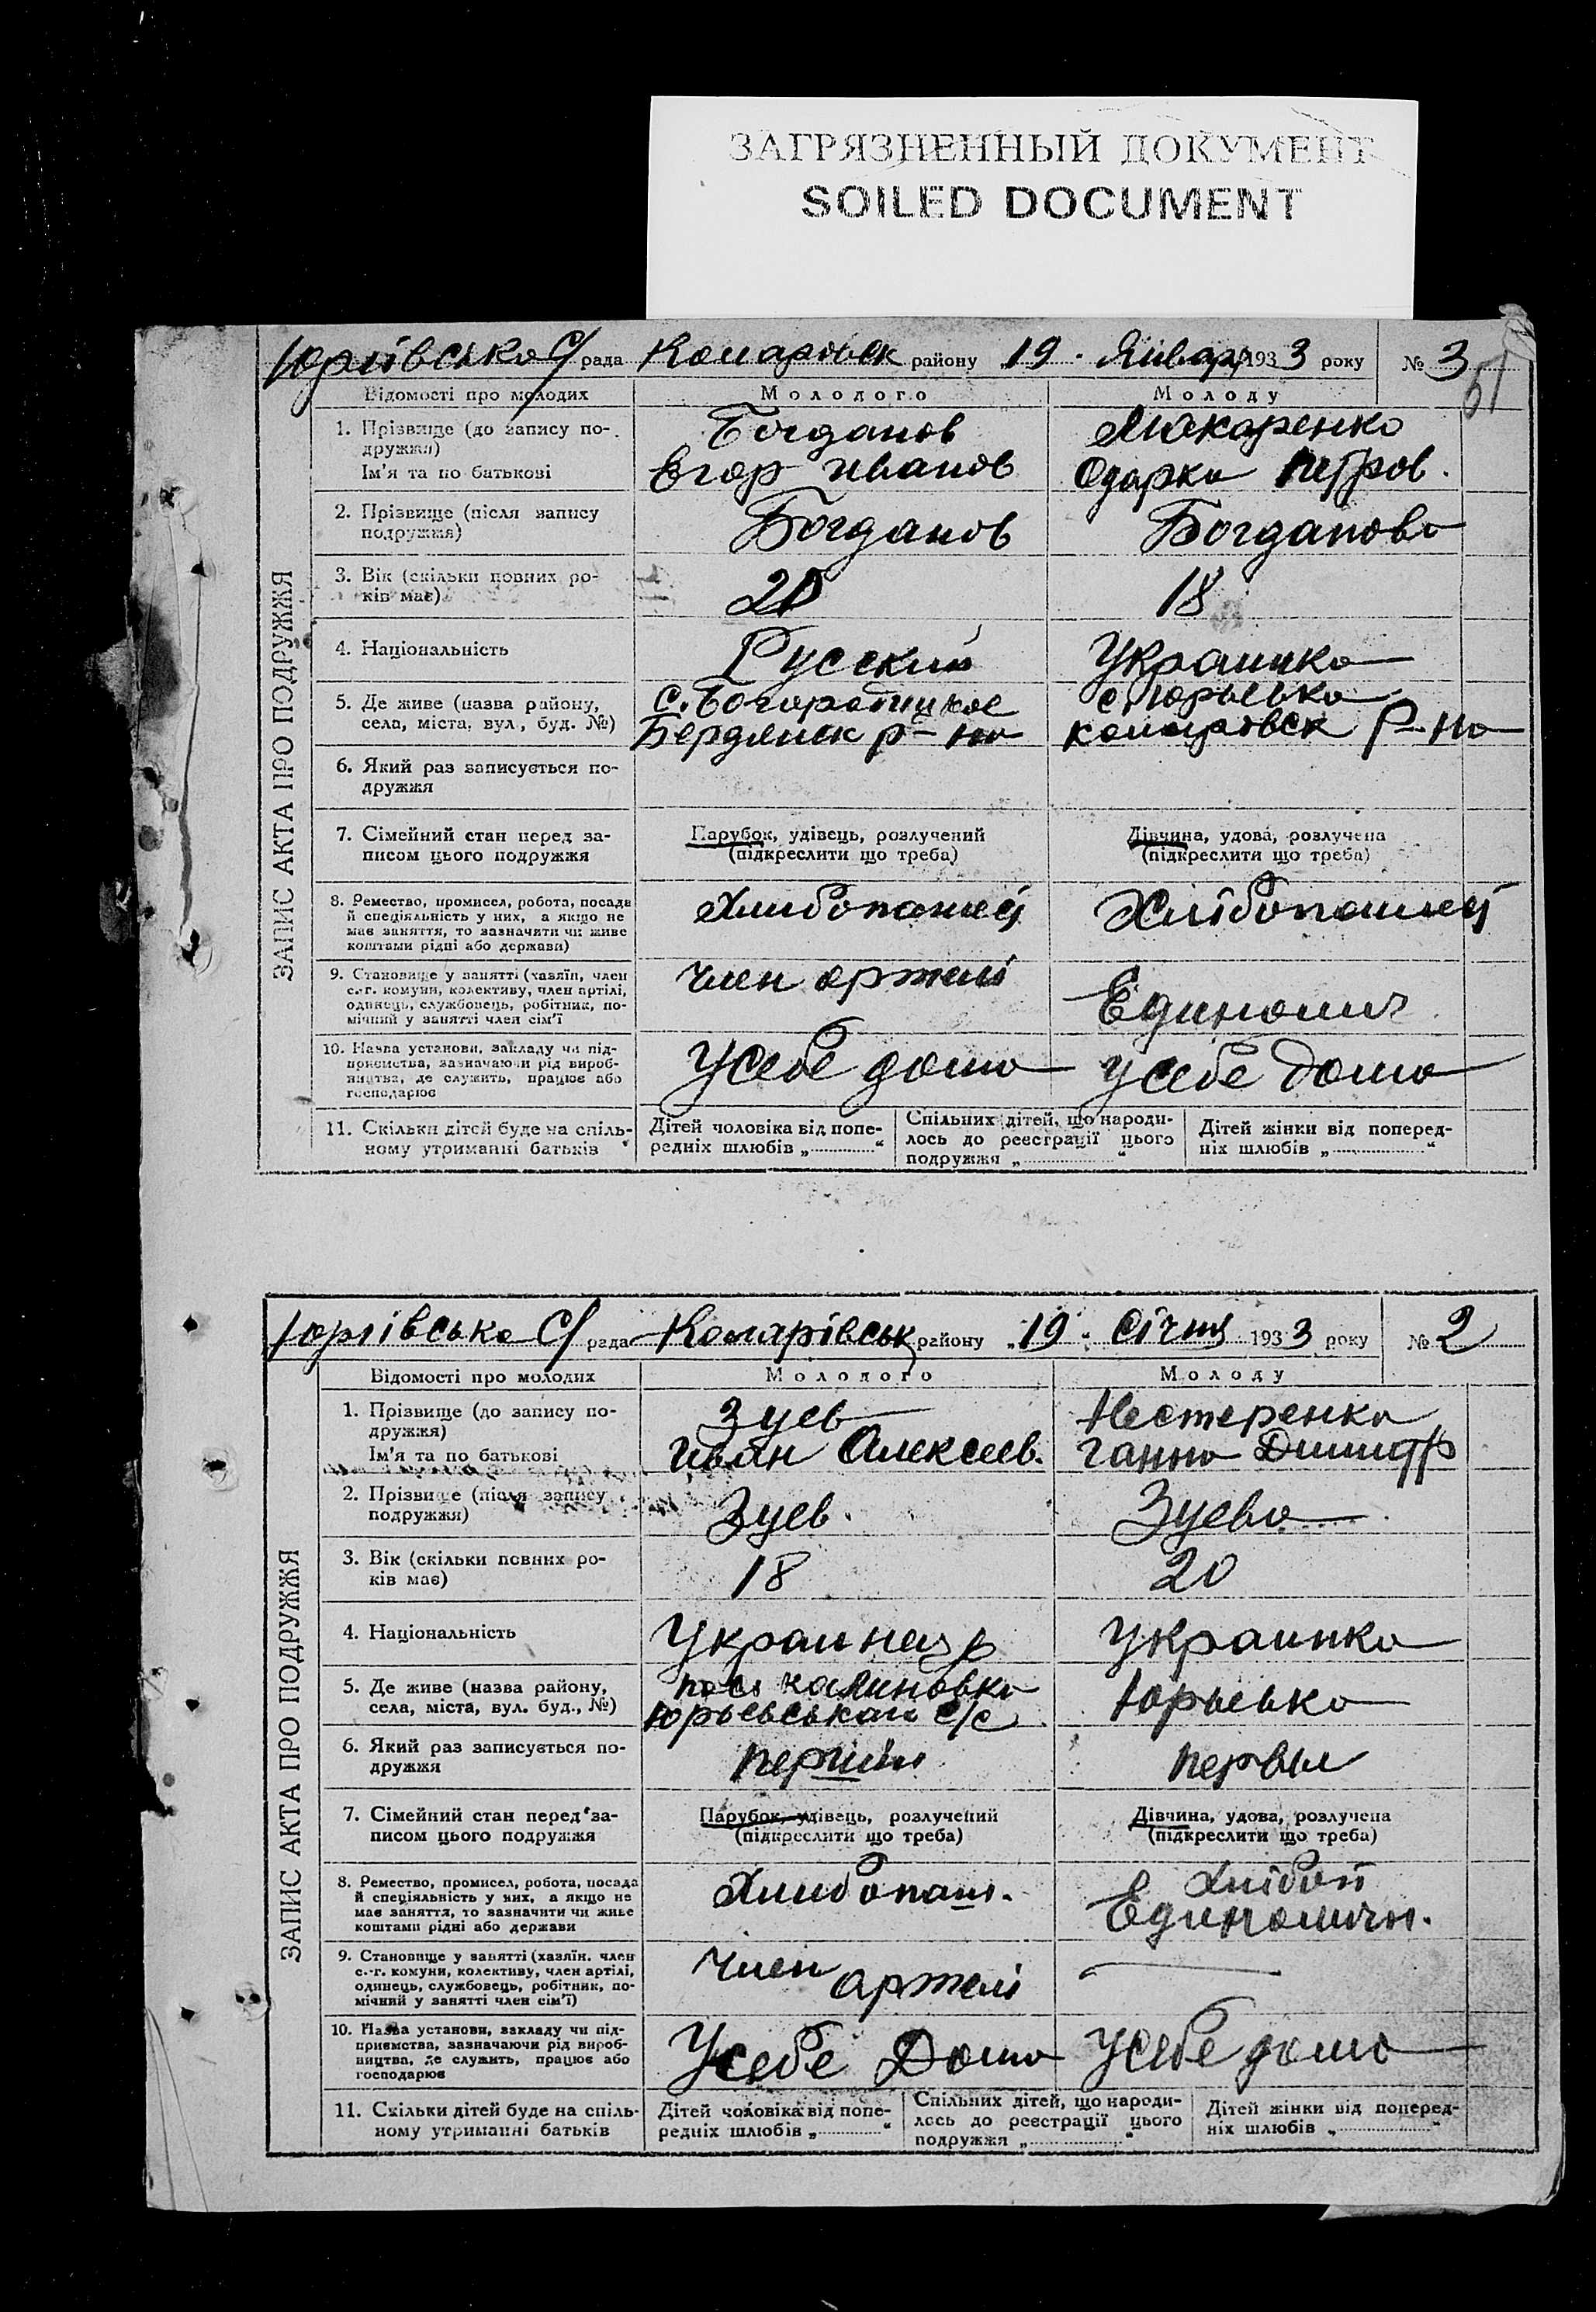 ЗАГРЯЗНЕННЫЙ ДОКУМЕНТ
SOILED DOCUMENT
Юріївська С/рада Комарівськ району „19. Январ 1933 року № 3
51
ЗАПИС АКТА ПРО ПОДРУЖЖЯ
Відомості про молодих Молодого Молоду
1. Прізвище (до запису по-
дружжя)
Ім'я та по батькові
Богданов
Егор Иванов
Макаренко
Одарка Петров.
2. Прізвище (після запису
подружжя)
Богданов
Богданова
3. Вік (скільки повних ро-
ків має)
18
4. Національність
Русский
Украинка
5. Де живе (назва району,
села, міста, вул., буд. №)
с. Богородицкое
Бердянск р-на
с. Юрьевка
р-на
6. Який раз записується по-
дружжя
7. Сімейний стан перед за-
писом цього подружжя
Парубок, удівець, розлучений
(підкреслити що треба)
Дівчина, удова, розлучена
(підкреслити що треба)
8. Ремество, промисел, робота, посада
й спеціяльність у них, а якщо не
має заняття, то зазначити чи живе
коштами рідні або держави)
Хлибопашец
Хлібопашец
9. Становище у занятті (хазяїн, член
с.-г. комуни, колективу, член артілі,
одинець, службовець, робітник, по-
мічний у занятті член сім'ї
член артелі
Единолич
10. Назва установи, закладу чи під-
приємства, зазначаючи рід вироб-
ництва, де служить, працює або
господарює
У себе дома
У себе дома
11. Скільки дітей буде на спіль-
ному утриманні батьків
Дітей чоловіка від попе-
редніх шлюбів „ “
Спільних дітей, що народи-
лось до реєстрації цього
подружжя „ “
Дітей жінки від поперед-
ніх шлюбів „ “
Юріївська С/рада району „19. Січня 1933 року № 2
ЗАПИС АКТА ПРО ПОДРУЖЖЯ
Відомості про молодих Молодого Молоду
1. Прізвище (до запису по-
дружжя)
Ім'я та по батькові
Зуев
Иван Алексеев.
Нестеренка
Ганна Димитр
2. Прізвище (після запису
подружжя)
Зуев.
Зуева
3. Вік (скільки повних ро-
ків має)
18
20
4. Національність
Украинец
Украинка
5. Де живе (назва району,
села, міста, вул. буд., №)
пос. Калиновка
Юрьевськаи с/с
Юрьевка
6. Який раз записується по-
дружжя
перший
первы
7. Сімейний стан перед за-
писом цього подружжя
Парубок, удівець, розлучений
(підкреслити що треба)
Дівчина, удова, розлучена
(підкреслити що треба)
8. Ремество, промисел, робота, посада
й спеціяльність у них, а якщо не
має заняття, то зазначити чи живе
коштами рідні або держави
Хлибопаш.
Хлібоп
Единоличн.
9. Становище у занятті (хазяїн, член
с.-г. комуни, колективу, член артілі,
одинець, службовець, робітник, по-
мічний у занятті член сім'ї)
Член
артелі
10. Назва установи, закладу чи під-
приємства, зазначаючи рід вироб-
ництва, де служить, працює або
господарює
У себе Дома
У себе дома
11. Скільки дітей буде на спіль-
ному утриманні батьків
Дітей чоловіка від попе-
редніх шлюбів „ “
Спільних дітей, що народи-
лось до реєстрації цього
подружжя „ “
Дітей жінки від поперед-
ніх шлюбів „ “